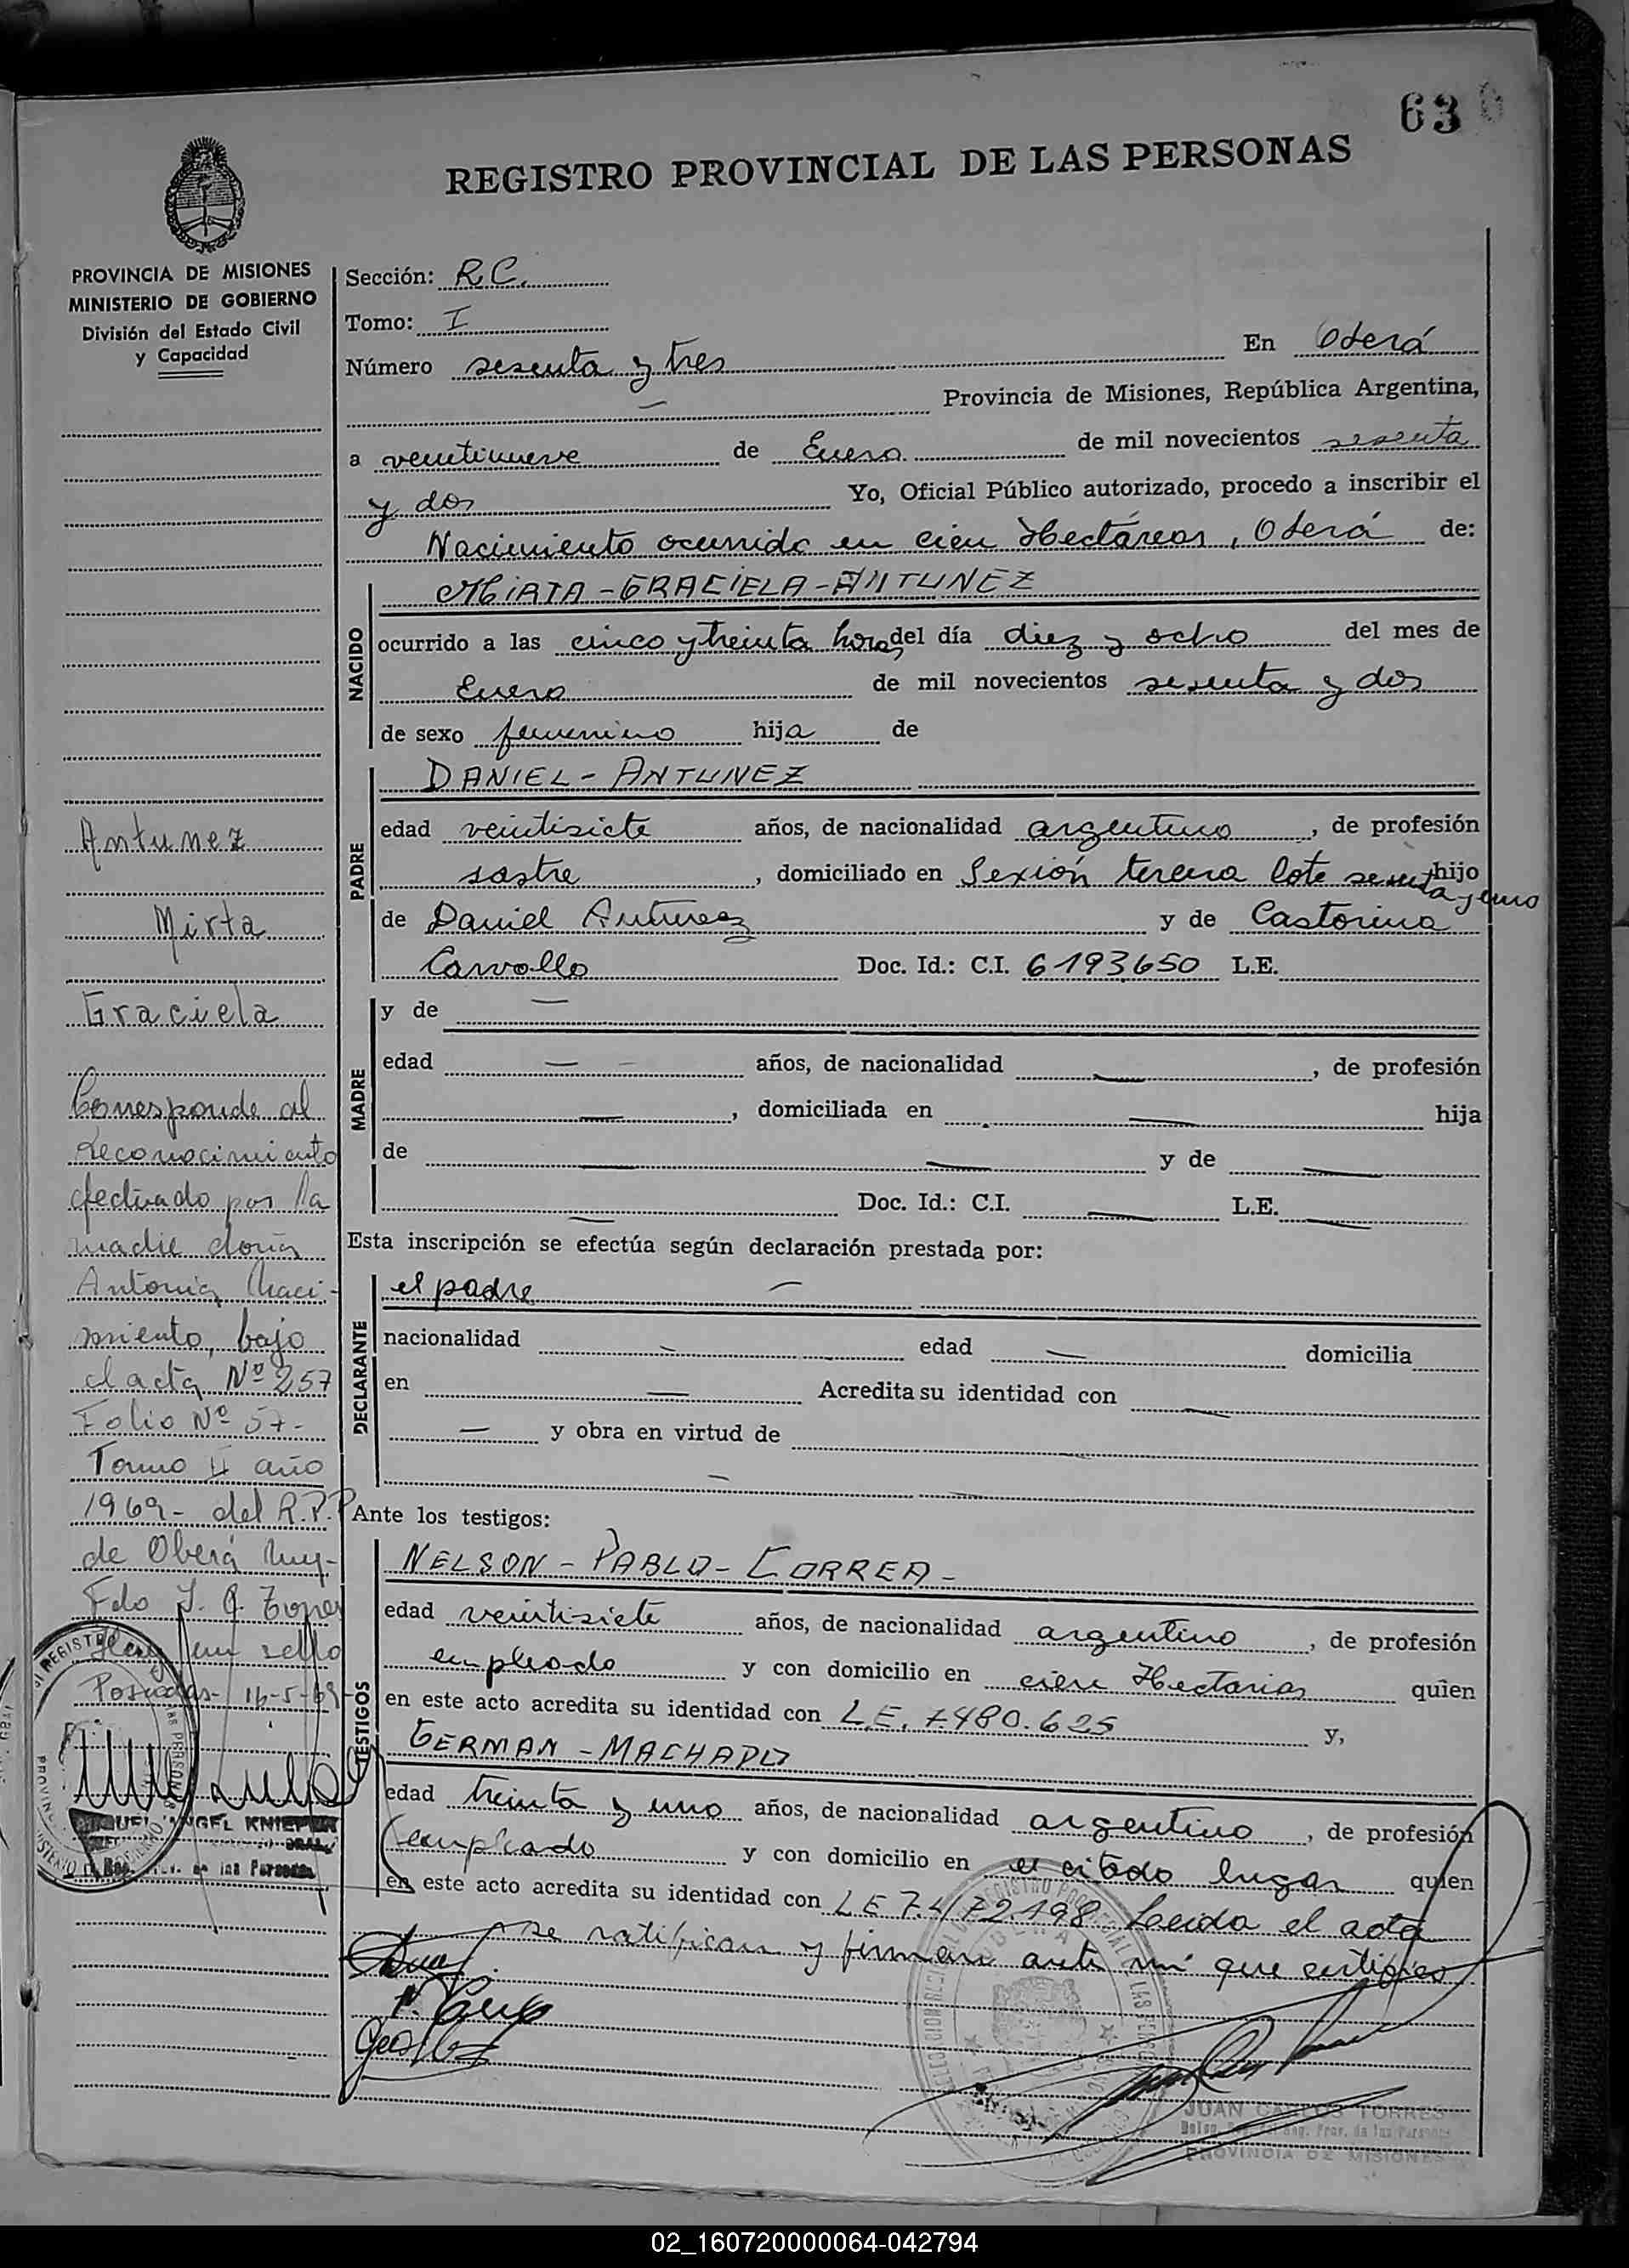 63
REGISTRO PROVINCIAL DE LAS PERSONAS
PROVINCIA DE MISIONES
MINISTERIO DE GOBIERNO
División del Estado Civil
y Capacidad
Antunez
Mirta
Graciela
Corresponde al
reconocimiento
efectuado por la
madre doña
Antonia Naci-
miento, bajo
el acta Nº 257
Folio Nº 57-
Tomo II año
1969- del R.P.P
de Oberá
Fdo J.
un sello
Posadas- 16-5-69
Sección: R.C.
Tomo: I
Número sesenta y tres En Oberá
Provincia de Misiones, República Argentina,
a veintinueve de Enero de mil novecientos sesenta
y dos Yo, Oficial Público autorizado, procedo a inscribir el
Nacimiento ocurrido en cien Hectáreas, Oberá de:
NACIDO
MiRTA-GRACIELA-ANTUNEZ
ocurrido a las cinco y treinta horas del día diez y ocho del mes de
Enero de mil novecientos sesenta y dos
de sexo femenino hija de
PADRE
DANIEL-ANTUNEZ
edad veintisiete años, de nacionalidad argentino, de profesión
sastre, domiciliado en Sexión tercera lote sesenta y uno hijo
de Daniel Antunez y de Castorina
Carvallo Doc. Id.: C.I. 6193650 L.E.
MADRE
y de —
edad — años, de nacionalidad —, de profesión
—, domiciliada en — hija
de — y de —
Doc. Id.: C.I. — L.E. —
Esta inscripción se efectúa según declaración prestada por:
DECLARANTE
el padre —
nacionalidad — edad — domicilia
en — Acredita su identidad con —
— y obra en virtud de
—
Ante los testigos:
TESTIGOS
NELSON-PABLO-CORREA-
edad veintisiete años, de nacionalidad argentino, de profesión
empleado y con domicilio en cien Hectarias quien
en este acto acredita su identidad con L.E. 7.480.625 y,
GERMAN-MACHADO
edad treinta y uno años, de nacionalidad argentino, de profesión
empleado y con domicilio en el citado lugar quien
en este acto acredita su identidad con LE 7.472.198 Leida el acta
se ratifican y firman ante mi que certifico
JUAN CARLOS TORRES
PROVINCIA DE MISIONES
02_160720000064-042794